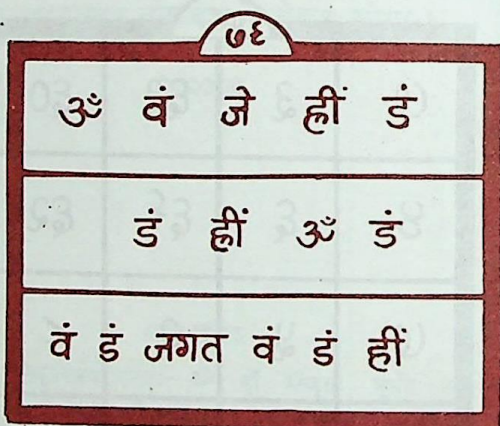 ७६
ॐ वं जे ह्रीं डं
डं ह्रीं ॐ डं
वं डं जगत वं डं ह्रीं